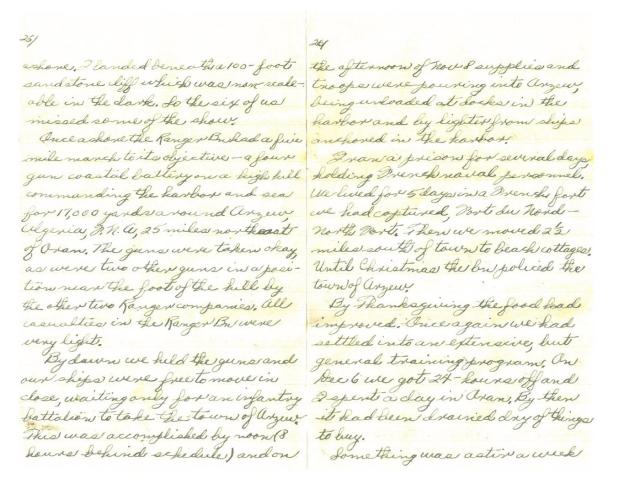 25/
ashore. I landed beneath a 100-foot
sandstone cliff which was non-scale-
able in the dark. So the six of us
missed some of the show.
Once ashore the Ranger Bn had a five
mile march to its objective - a four
gun coastal battery on a high hill
commanding the harbor and sea
for 17,000 yards around Arzew,
Algeria, F.N.A., 25 miles northeast
of Oran. The guns were taken okay,
as were two other guns in a posi-
tion near the foot of the hill by
the other two Ranger companies. All
casualties in the Ranger Bn were
very light.
By dawn we held the guns and
our ships were free to move in
close, waiting only for an infantry
battalion to take the town of Arzew.
This was accomplished by noon (8
hours behind schedule) and on
26/
the afternoon of Nov 8 supplies and
troops were pouring into Arzew,
being unloaded at docks in the
harbor and by lighter from ships
anchored in the harbor.
I ran a prison for several days
holding French naval personnel.
We lived for 5 days in a French fort
we had captured, Fort du Nord -
North Fort. Then we moved 2½
miles south of town to beach cottages.
Until Christmas the bn policed the
town of Arzew.
By Thanksgiving the food had
improved. Once again we had
settled into an extensive, but
general training program. On
Dec 6 we got 24-hours off and
I spent a day in Oran. By then
it had been drained dry of things
to buy.
Something was astir a week